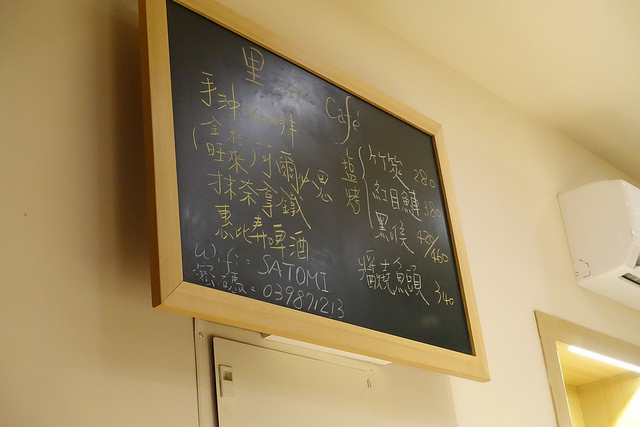 里 Café
手沖
(金萊
旺萊)阿爾必思
抹茶拿鐵
惠比寿啤酒
Wifi: SATOMI
密碼: 039871213
鹽烤
竹筴 280
紅目鰱 380
黑喉 420/460
醬燒魚頭 340